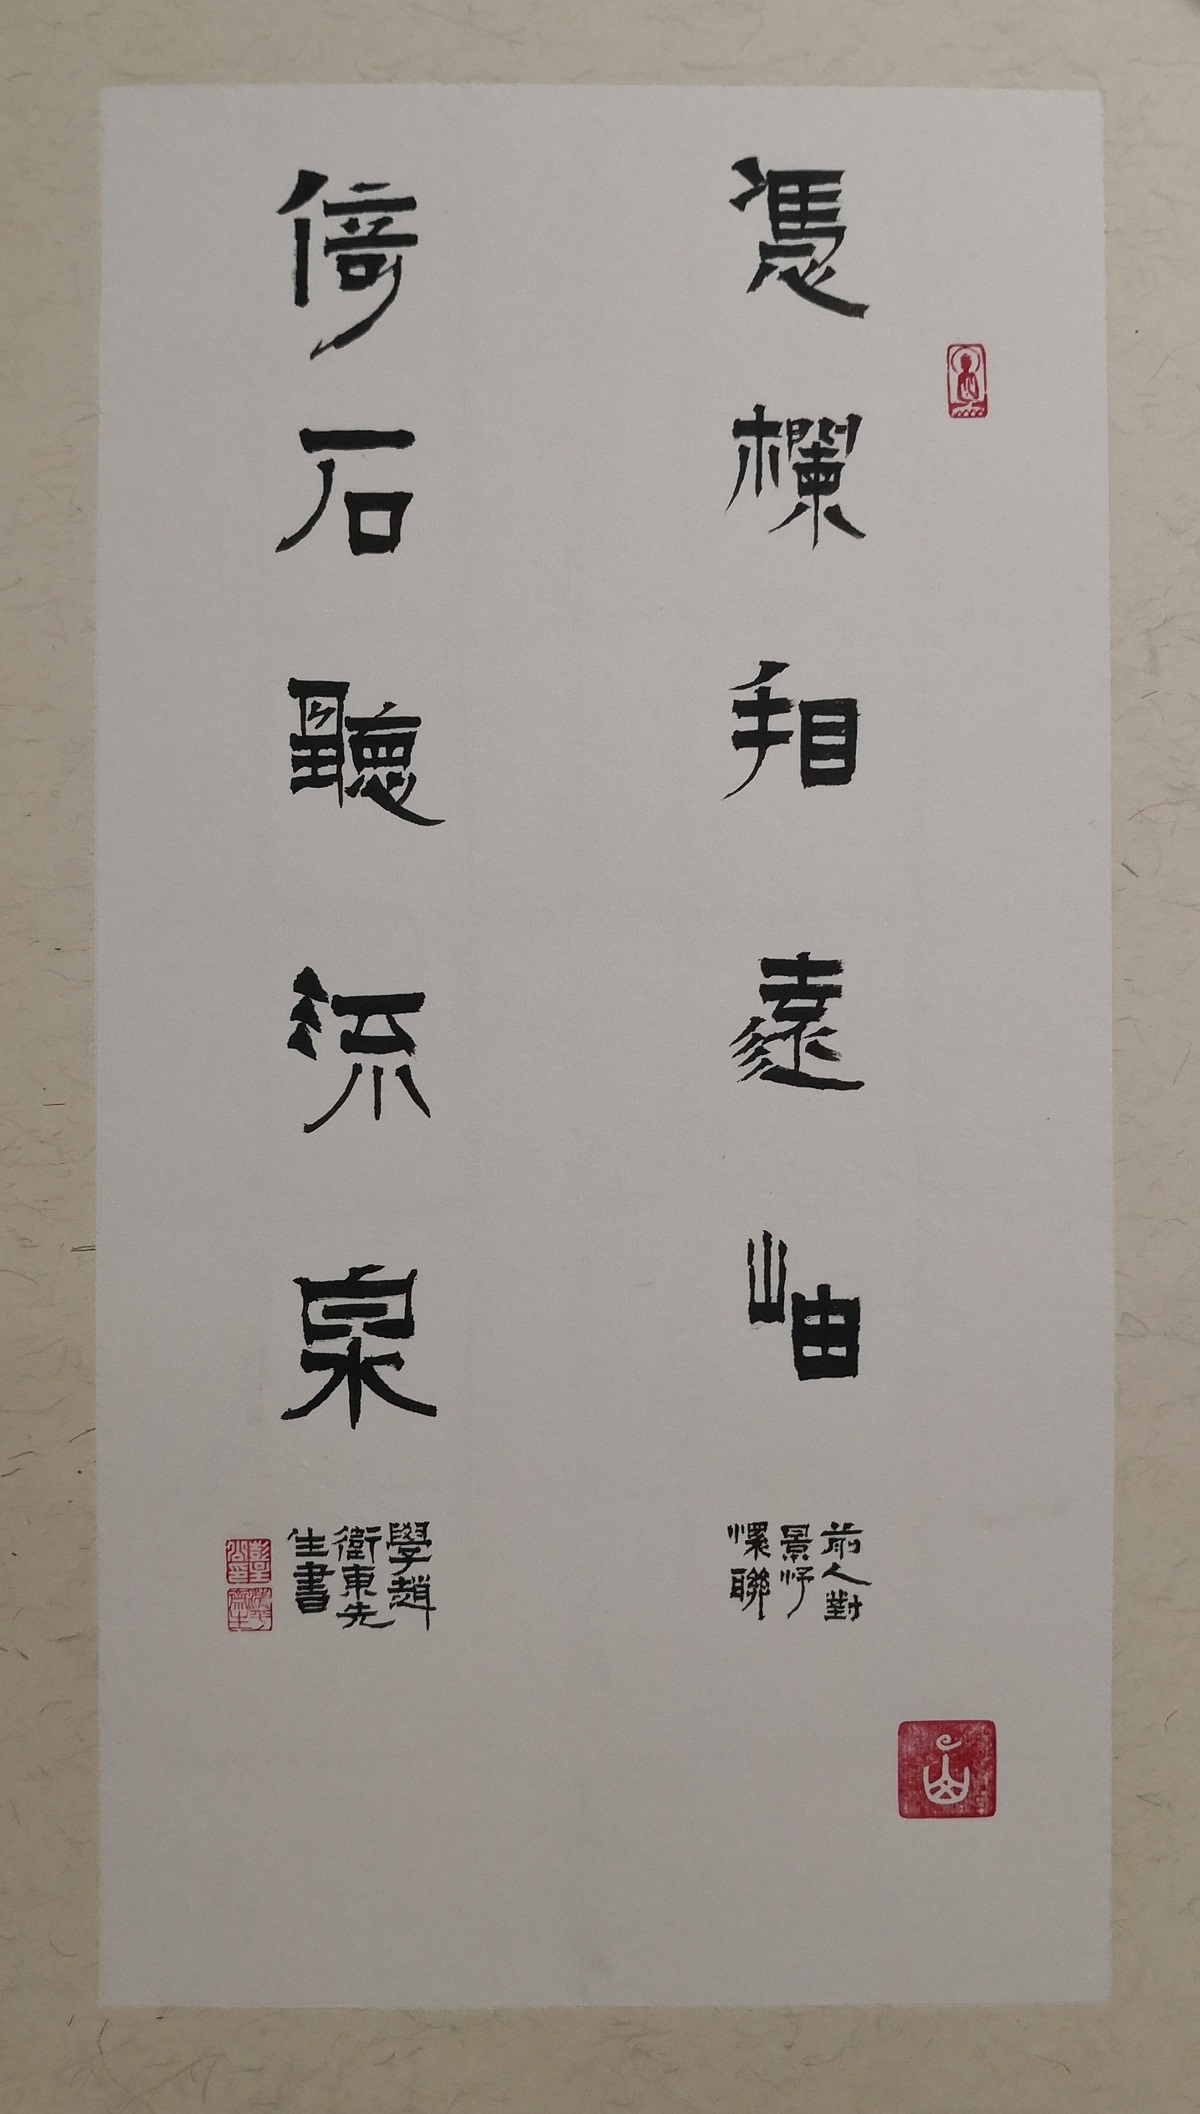 憑欄看遠岫
前人對
景抒
懷聯
倚石聽流泉
學趙
衛東先
生書